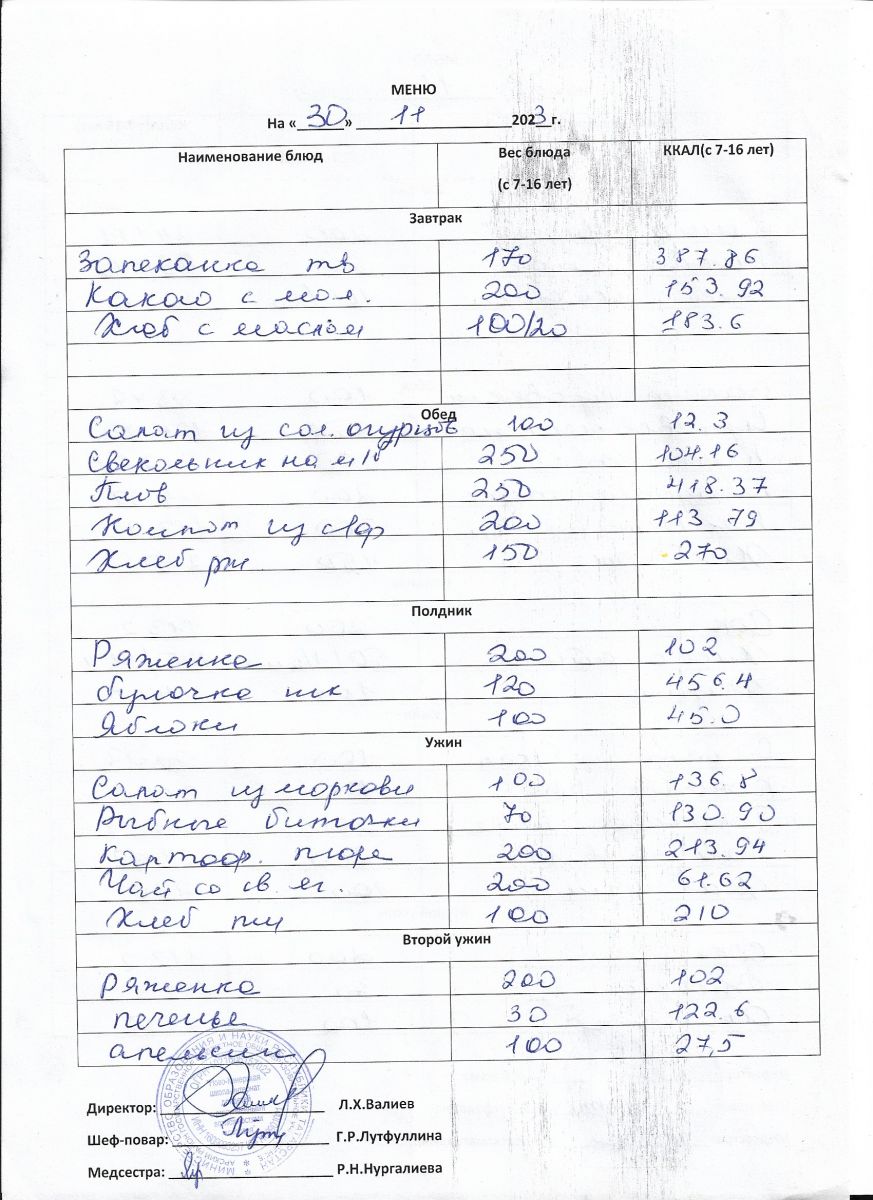 МЕНЮ
На «30» 11 2023 г.
Наименование блюд Вес блюда (с 7-16 лет) ККАЛ(с 7-16 лет)
Завтрак
Запеканка тв 170 387.86
Какао с мол. 200 153.92
Хлеб с маслом 100/20 183.6
Обед
Салат из сол. огурцов 100 12.3
Свекольник на м/б 250 104.16
Плов 250 418.37
Компот из с/ф 200 113.79
Хлеб рж. 150 270
Полдник
Ряженка 200 102
булочка шк 120 456.4
Яблоки 100 45.0
Ужин
Салат из моркови 100 136.8
Рыбные биточки 70 130.90
Картоф. пюре 200 213.94
Чай со св. яг. 200 61.62
Хлеб пш 100 210
Второй ужин
Ряженка 200 102
печенье 30 122.6
апельсин 100 27,5
Директор: Л.Х.Валиев
Шеф-повар: Г.Р.Лутфуллина
Медсестра: Р.Н.Нургалиева